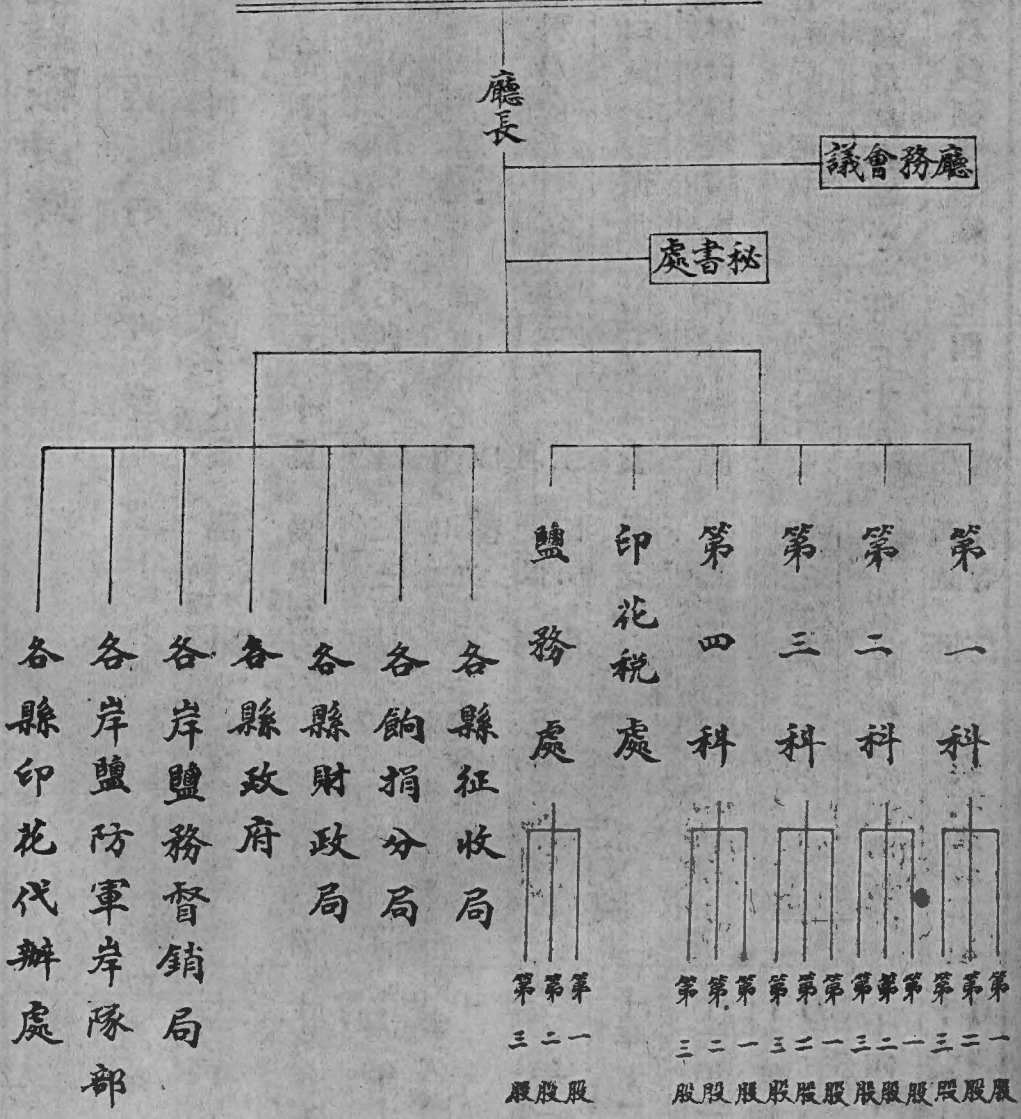 廳長
廳務會議
秘書處
第一科
第二科
第三科
第四科
印花稅處
鹽務處
各縣征收局
各餉捐分局
各縣財政局
各縣政府
各岸鹽務督銷局
各岸鹽防軍岸隊部
各縣印花代辦處
第一股
第二股
第三股
第一股
第二股
第三股
第一股
第二股
第三股
第一股
第二股
第三股
第一股
第二股
第三股